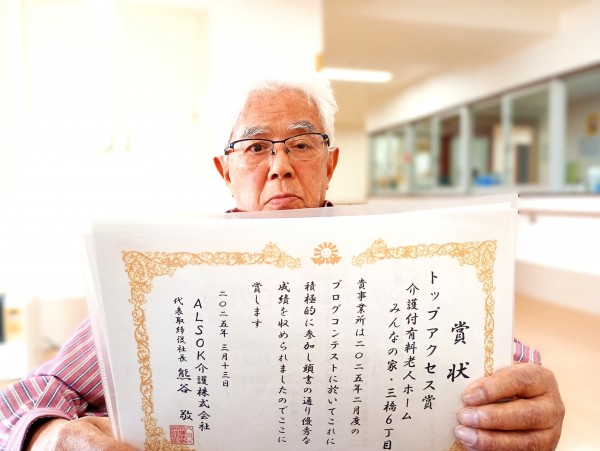 賞状
トップアクセス賞
介護付有料老人ホーム
みんなの家・三橋6丁目
貴事業所は二〇二五年二月度の
ブログコンテストに於いてこれに
積極的に参加し頭書の通り優秀な
成績を収められましたのでここに
賞します
二〇二五年三月十三日
ALSOK介護株式会社
代表取締役社長 熊谷 敬